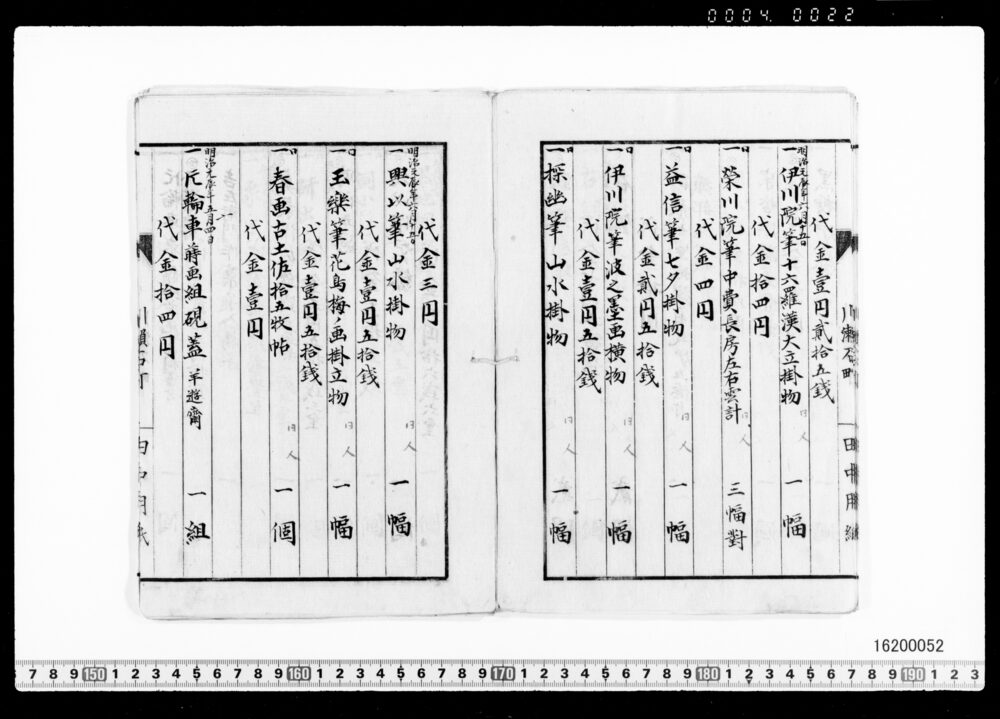 0004 0022
代金壹円貳拾五銭
明治元辰年六月十五日
一 伊川院筆十六羅漢大立掛物 同人 一幅
代金拾四円
同
一 榮川院筆中費長房左右雲計 同人 三幅對
代金四円
同
一 益信筆七夕掛物 一幅
代金貳円五拾銭
同
一 伊川院筆波之墨画横物 同人 一幅
代金壹円五拾銭
同
一 探幽筆山水掛物 同人 一幅
代金三円
明治元辰年六月十五日
一 興以筆山水掛物 同人 一幅
代金壹円五拾銭
同
一 玉樂筆花鳥梅ノ画掛立物 同人 一幅
代金壹円五拾銭
同
一 春画古土佐拾五枚帖 同人 一個
代金壹円
明治元辰年五月四日
一 片輪車蒔画組硯蓋 羊遊齋 一組
代金拾四円
田中用紙
16200052
7 8 9 150 1 2 3 4 5 6 7 8 9 160 1 2 3 4 5 6 7 8 9 170 1 2 3 4 5 6 7 8 9 180 1 2 3 4 5 6 7 8 9 190 1 2 3